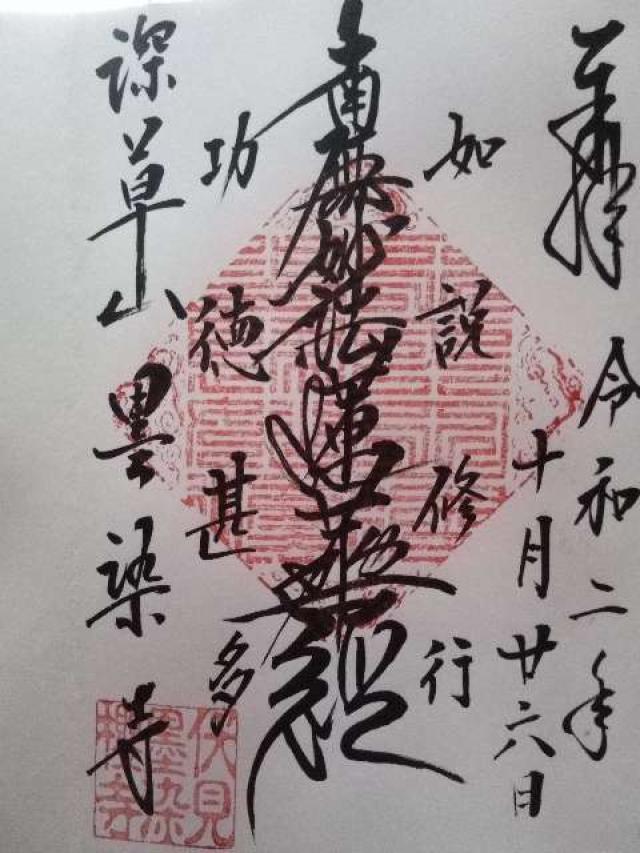 奉拝 令和二年
十月廿六日
如説修行
南無妙法蓮華経
功徳甚多
深草山 墨染寺
伏見
墨染
櫻寺